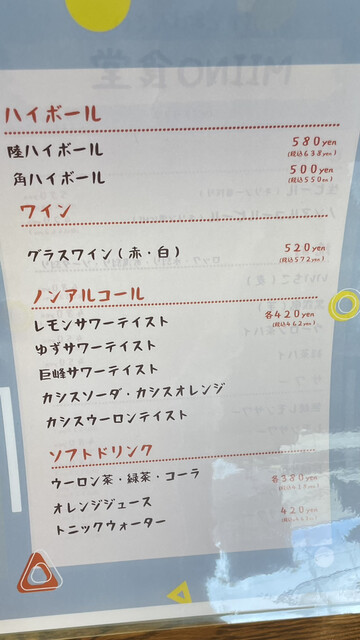 ハイボール
陸ハイボール 580yen
(税込638yen)
角ハイボール 500yen
(税込550yen)
ワイン
グラスワイン(赤・白) 520yen
(税込572yen)
ノンアルコール
レモンサワーテイスト 各420yen
(税込462yen)
ゆずサワーテイスト
巨峰サワーテイスト
カシスソーダ・カシスオレンジ
カシスウーロンテイスト
ソフトドリンク
ウーロン茶・緑茶・コーラ 各380yen
オレンジジュース 420yen
トニックウォーター